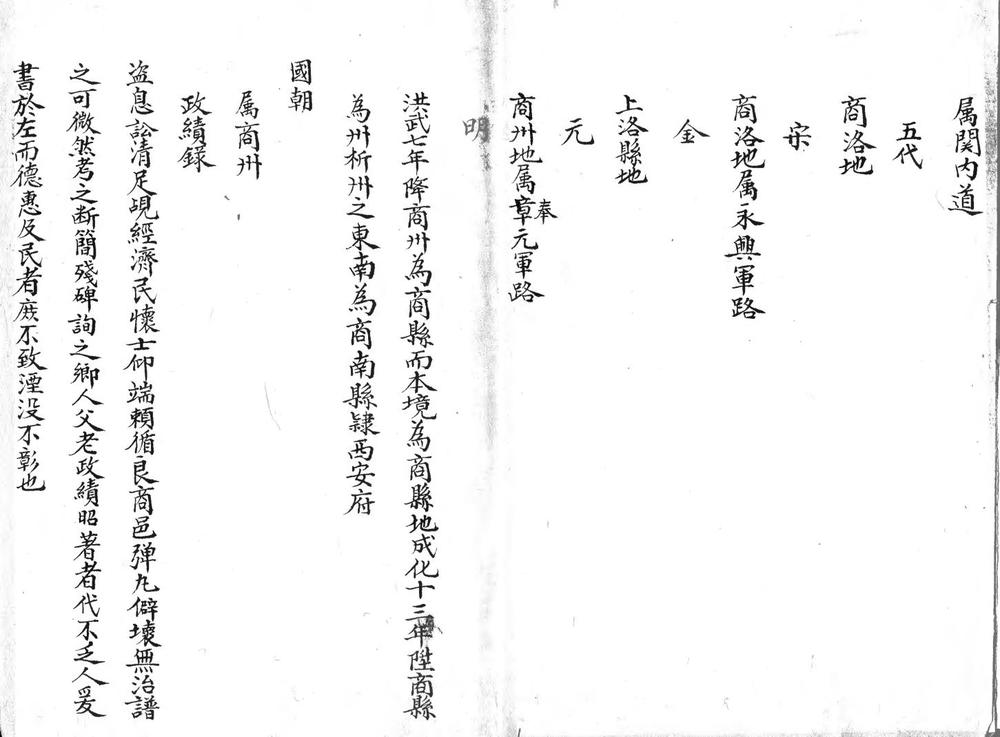 属関内道
五代
商洛地
宋
商洛地属永興軍路
金
上洛縣地
元
商州地属章元軍路
奉
明
洪武七年降商州為商縣而本境為商縣地成化十三年陞商縣
為州析州之東南為商南縣隷西安府
國朝
属商州
政績錄
盗息訟清足覘經濟民懷士仰端頼循良商邑弹九僻壤無治譜
之可徴然考之断簡殘碑詢之鄉人父老政績昭著者代不乏人爰
書於左而德惠及民者庶不致湮没不彰也